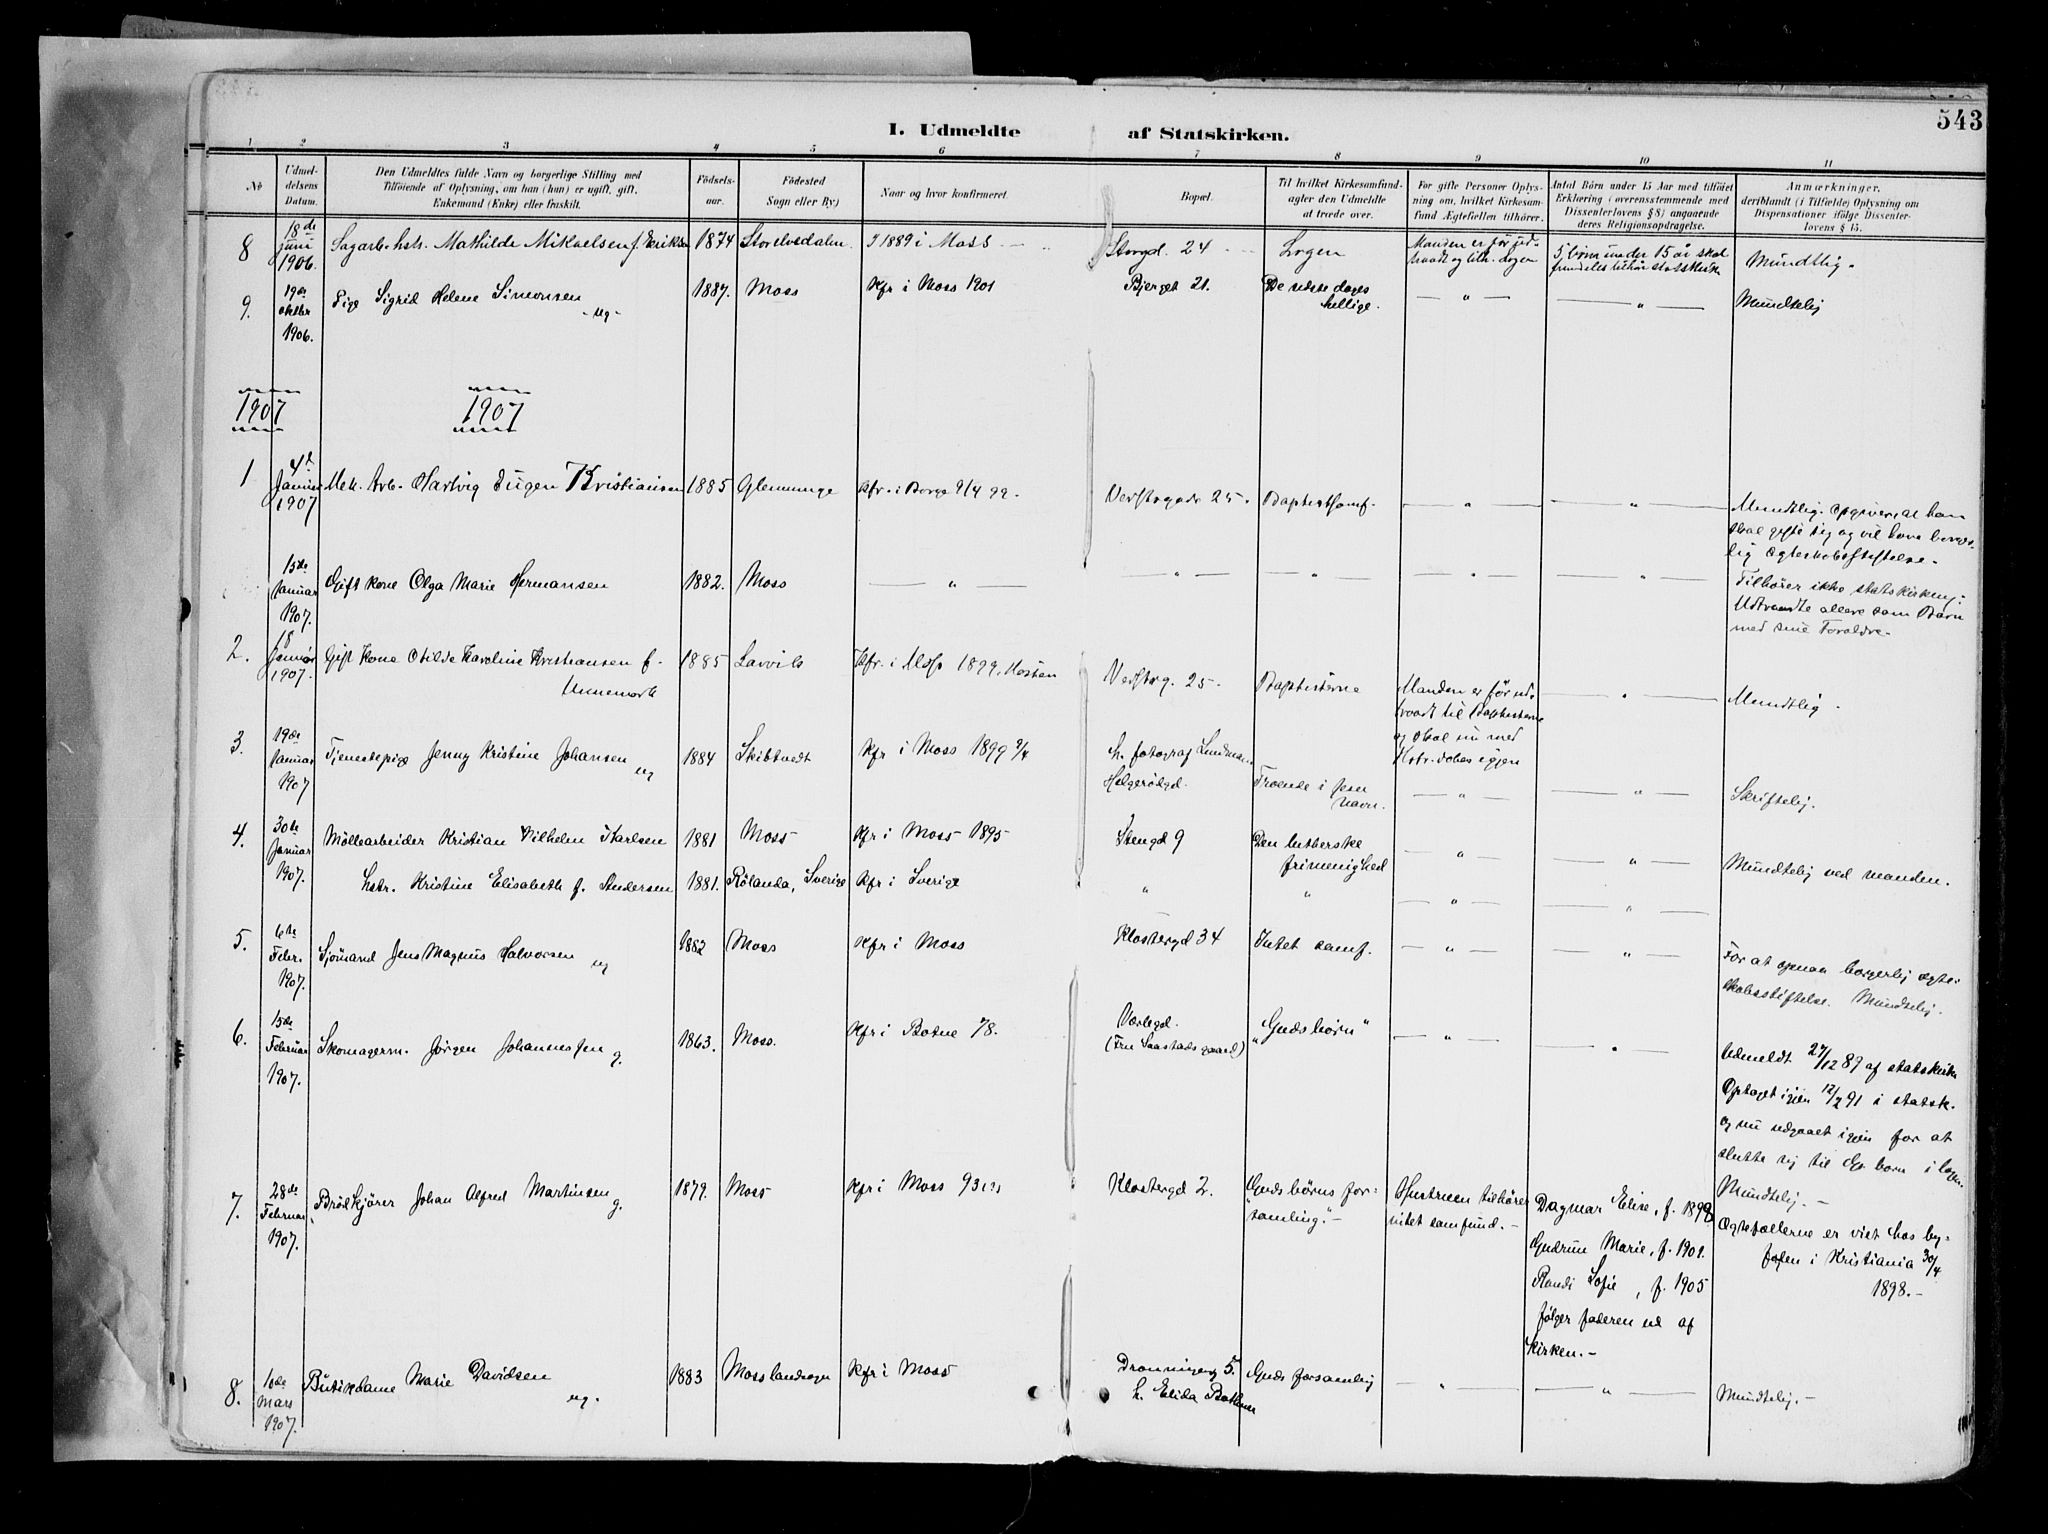 543
I. Udmeldte af Statskirken.
1 2 3 4 5 6 7 8 9 10 11
No
Udmel-
delsens
Datum.
Den Udmeldtes fulde Navn og borgerlige Stilling med
Tilföiende af Oplysning, om han (hun) er ugift, gift,
Enkemand (Enke) eller fraskilt.
Födsels-
aar.
Födested
Sogn eller By)
Naar og hvor konfirmeret.
Bopæl.
Til hvilket Kirkesamfund
agter den Udmeldte
at træde over.
For gifte Personer Oplys-
ning om, hvilket Kirkesam-
fund Ægtefællen tilhörer.
Antal Börn under 15 Aar med tilföiet
Erklæring (overensstemmende med
Dissenterlovens § 8) angaaende
deres Religionsopdragelse.
Anmærkninger,
deriblandt (i Tilfælde) Oplysning om
Dispensationer ifölge Dissenter-
lovens § 15.
8
18de
juni
1906.
Sagarb. hstr. Mathilde Mikaelsen f. Eriksen
1874
Storelvedalen
I 1889 i Moss
Storgd. 24
Logen
Manden er før ud-
traadt og tilh. Logen
5 börn under 15 år skal
fremdeles tilhöre statskirken
Mundtlig.
9.
19de
oktbr
1906.
Pige Sigrid Helene Simonsen
ug
1887.
Moss
Kfr i Moss 1901
Bjerget 21.
De sidste dages
hellige.
— " —
— " —
Mundtelig
1907
1907
1
4d
Januar
1907
Mek. Arb. Hartvig Eugen Kristiansen
1885
Glemminge
Kfr. i Borge 9/4 99.
Verftsgade 25.
Baptistsamf.
— " —
— " —
Mundtlig. Opgiver, at han
skal gifte sig og vil have borger-
lig Ægteskabsstiftelse.
15de
Januar
1907.
Gift kone Olga Marie Hermansen
1882.
Moss
— " —
"
— " —
— " —
— " —
Tilhører ikke statskirken;
Udtraadte allere som Barn
med sine Forældre.
2.
18
Januar
1907.
Gift Kone Otilde Karoline Kristiansen f.
Unnemark
1885
Larvik
Kfr. i Moss 1899, Høsten
Verftsg. 25.
Baptisterne
Manden er før ud-
traadt til Baptisterne
og skal nu med
Hstr. døbes igjen
— " —
Mundtlig.
3.
19de
Januar
1907
Tjenestepige Jenny Kristine Johansen
ug
1884
Skibtvedt
Kfr i Moss 1899 9/4
h. fotograf
Helgerödgd.
Troende i Jesu
navn.
— " —
— " —
Skriftelig.
4.
30de
Januar
1907.
Möllearbeider Kristian Vilhelm Karlsen
1881
Moss
Kfr i Moss 1895
Stengd 9
Den lutherske
frimenighed
— " —
— " —
Mundtelig ved manden.
hstr. Kristine Elisabeth f. Andersen
1881.
Rölanda, Sverige
Kfr i Sverige
"
"
— " —
— " —
5.
6te
Febr.
1907.
Sjömand Jens Magnus Halvorsen
ug
1882
Moss
Kfr i Moss
Klostergd 34
Intet samf.
— " —
— " —
For at opnaa borgerlig ægte-
skabsstiftelse. Mundtelig.
6.
15de
Februar
1907.
Skomagerm. Jörgen Johannessen
g.
1863.
Moss.
Kfr i Botne 78.
Værlegd.
(Fru Saastads gaard)
"Guds börn"
— " —
— " —
Udmeldt 27/12 87 af statskirken
Optaget igjen 12/2 91 i statsk.
og nu udgaaet igjen for at
slutte sig til Gs. børn i logen.
Mundtelig. —
7.
28de
Februar
1907.
Brödkjörer Johan Alfred Martinsen
g.
1879.
Moss
Kfr i Moss 93
Klostergd 2.
Guds börns for-
samling." —
Hustruen tilhörer
intet samfund. —
Dagmar Elise, f. 1898
Gudrun Marie, f. 1901.
Randi Sofie, f. 1905
fölger faderen ud af
kirken. —
Ægtefællerne er viet hos by-
fogden i Kristiania 30/4
1898. —
8.
10de
Mars
1907.
Butikdame Marie Davidsen
ug.
1883
Moss landsogn
Kfr i Moss
Dronningeng 5.
h. Elida
Guds forsamling
— " —
— " —
Mundtelig. —